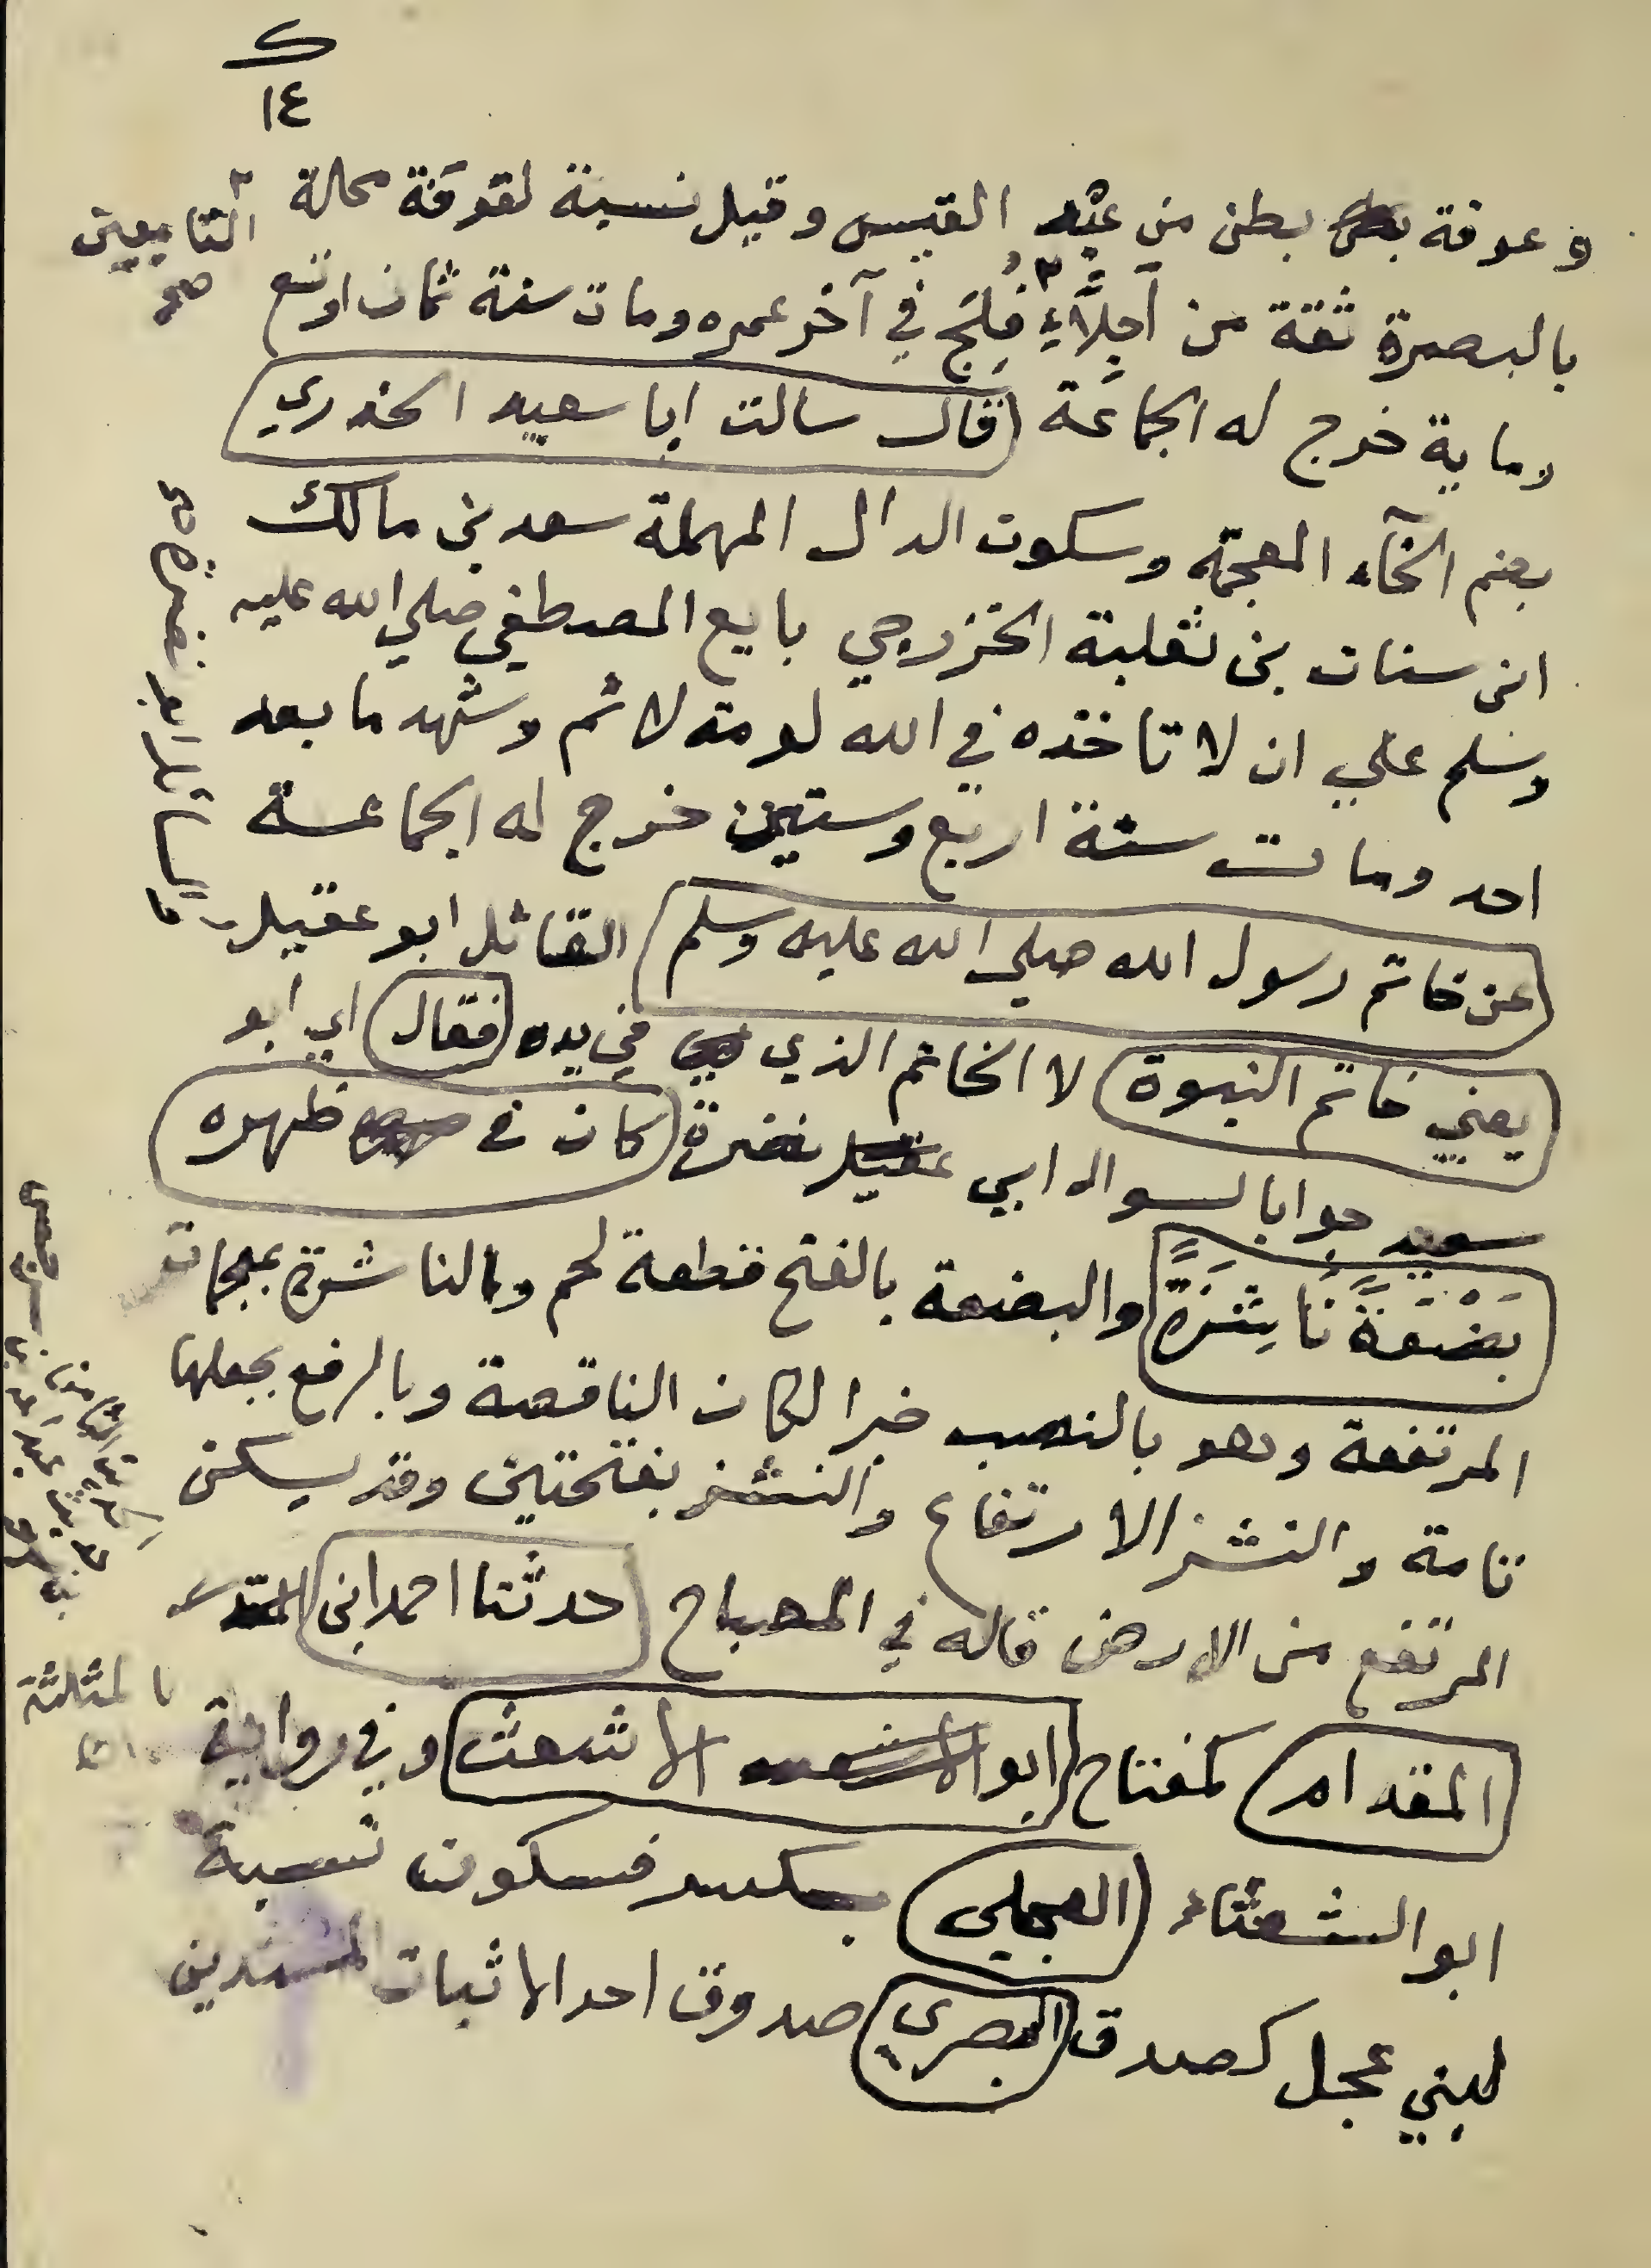 ک
١٤
وعوفة بطن من عبد القيس وقيل نسبة لعوقة محالة
بالبصرة ثقة من آجِلَّاءِ التابعين صح فُلِجَ في آخر عمره ومات سنة ثمان او تسع
وماية خرج له الجماعة قال سالت ابا سعيد الخدري
بضم الخآء المعجمة وسكون الدال المهملة سعد بن مالك
ابن سنان بن ثعلبة الخزرجي بايع المصطفي صلي الله عليه
وسلم علي ان لا تاخذه في الله لومة لائم وشهد ما بعد
احد ومات سنة اربع وستين خرج له الجماعة
عن خاتم رسول الله صلي الله عليه وسلم القائل ابو عقيل
والسائل ابو نضرة صح
يعني خاتم النبوة لا الخاتم الذي في يده فقال اي ابو
سعيد جوابا لسوال ابي نضرة كان في ظهره
بَضْعَةً نَاشِزَةً والبضعة بالفتح قطعة لحم والناشزة بمعجمات
المرتفعة وهو بالنصب خبرا لكان الناقصة وبالرفع بجعلها
تامة والنشز الارتفاع والنشز بفتحتين وقد يسكن
المرتفع من الارض قاله في المصباح حدثنا احمد ابن
المقدام كمفتاح ابو الاشعث وفي رواية
بالمثلثة
ابو الشعثاء العجلي بكسر فسكون نسبة
لبني عجل كصدق البصري صدوق احد الاثبات المسندين